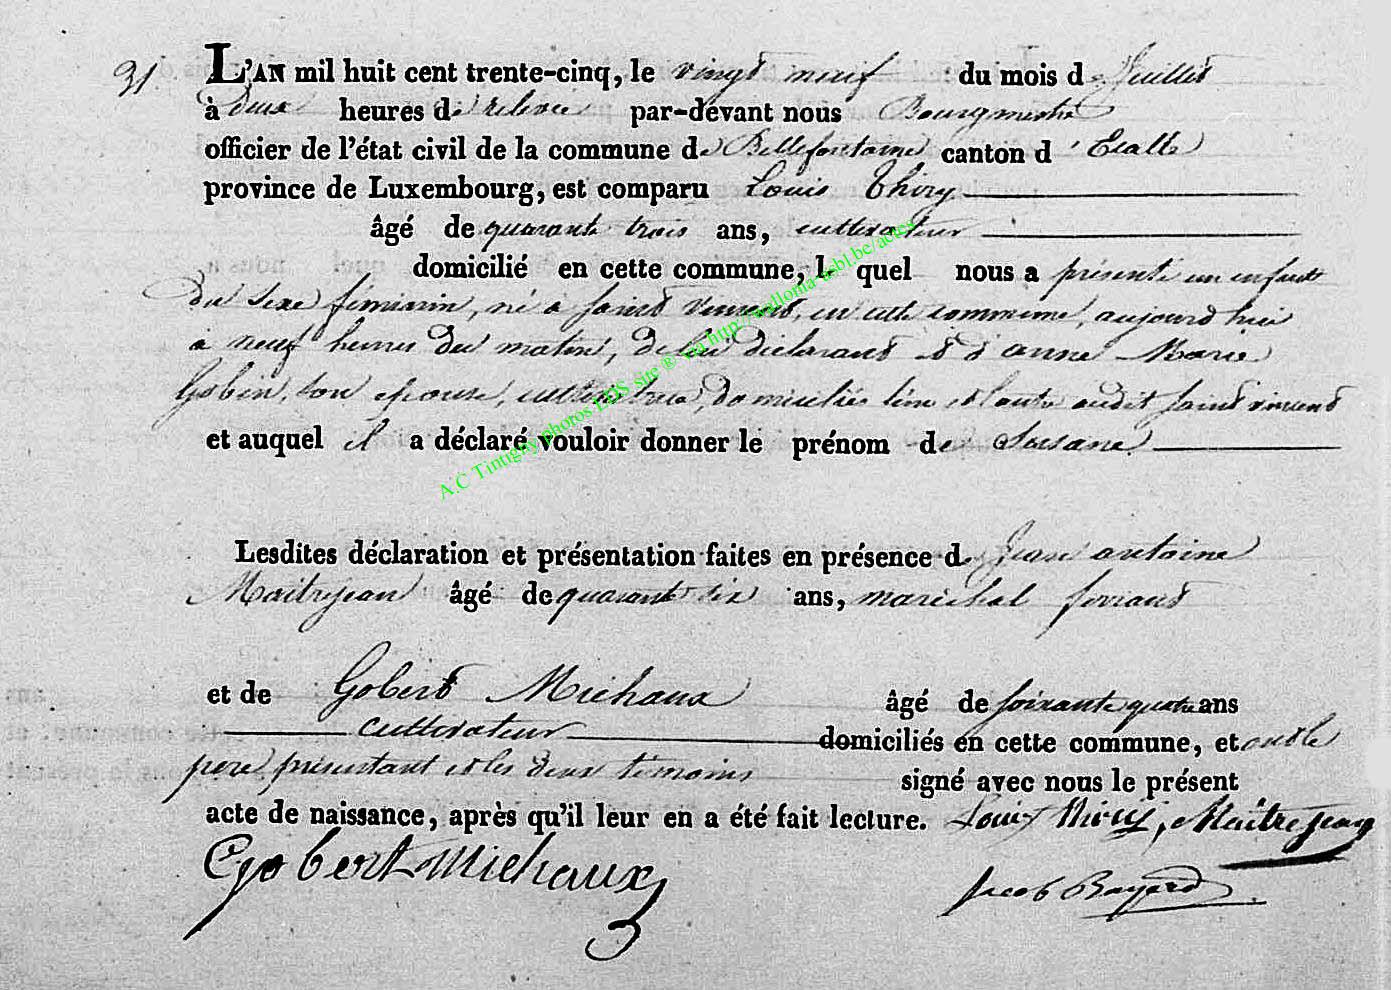 31.
L'AN mil huit cent trente-cinq, le vingt neuf du mois de Juillet
à deux heures de relevée par-devant nous Bourgmestre
officier de l'état civil de la commune de Bellefontaine canton d'Etalle
province de Luxembourg, est comparu Louis Thiry
âgé de quarante trois ans, cultivateur
domicilié en cette commune, le quel nous a présenté un enfant
du sexe féminin, né à saint vincent, en cette commune, aujourd'hui
à neuf heures du matin, de lui déclarant et d'anne Marie
Gobin, son épouse, cultivatrice, domiciliés l'un et l'autre audit saint vincent
et auquel il a déclaré vouloir donner le prénom de Susane
A.C Tintigny photos EDS site ® via http://wallonia-asbl.be/actes
Lesdites déclaration et présentation faites en présence de Jean antoine
Maitrejean âgé de quarante six ans, maréchal ferrant
et de Gobert Michaux âgé de soixante quatre ans
cultivateur domiciliés en cette commune, et ont le
pere présentant et les deux témoins signé avec nous le présent
acte de naissance, après qu'il leur en a été fait lecture. Louis Thiry, Maitrejean
Gobert Michaux
Jacob Bayard